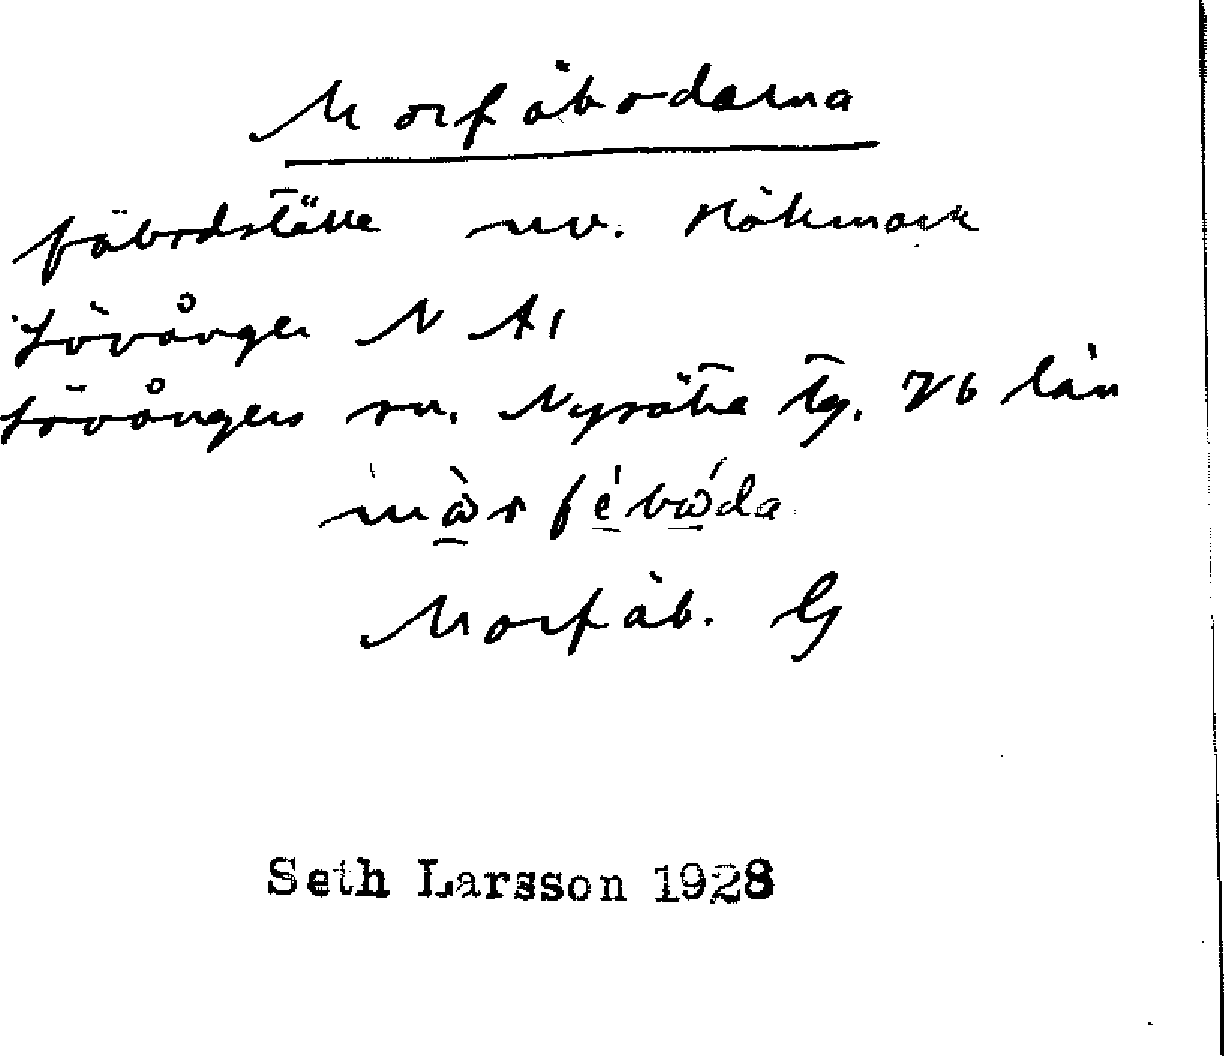 Morfäbodarna
fäbodställe nv. Hökmark
Lövånger N A1
Lövångers sn. Nysätra tg. Vb län
mɷ̀r fèbɷ́da
Morfäb. G
Seth Larsson 1928